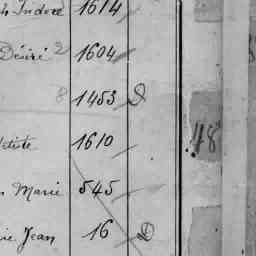 Isidore 1614
Désiré 2 1604
8 1453 D
1610
48
Marie 545
Jean 16 D